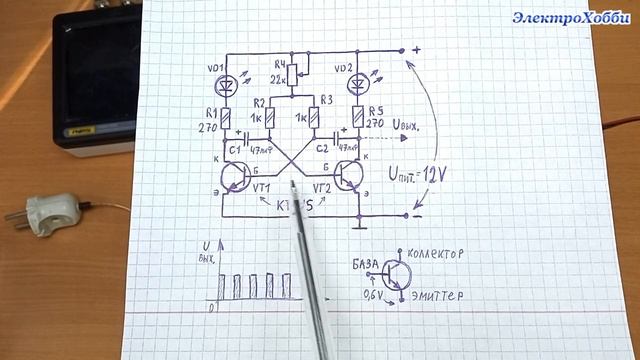 ЭлектроХобби
+
VD1
R4
22к
VD2
R1
270
R2
1к
R3
1к
R5
270
+
C1
47мкФ
+
C2
47мкФ
Uвых.
К
Б
Э
VT1
К
Б
Э
VT2
Uпит.=12V
-
U
вых.
0
КОЛЛЕКТОР
БАЗА
0,6V
ЭМИТТЕР